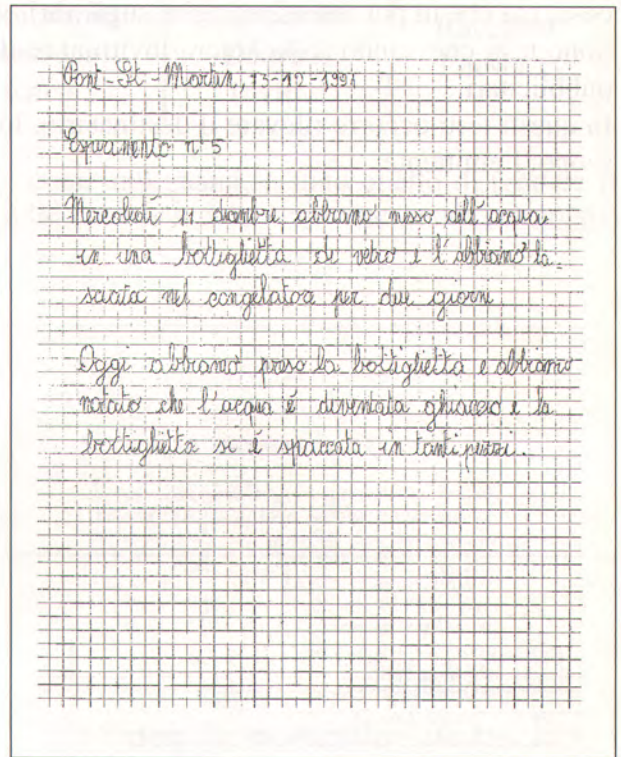 Pont-St-Martin, 13-12-1991
Esperimento n° 5
Mercoledì 11 dicembre abbiamo messo dell'acqua
in una bottiglietta di vetro e l'abbiamo la=
sciata nel congelatore per due giorni.
Oggi abbiamo preso la bottiglietta e abbiamo
notato che l'acqua è diventata ghiaccio e la
bottiglietta si è spaccata in tanti pezzi.